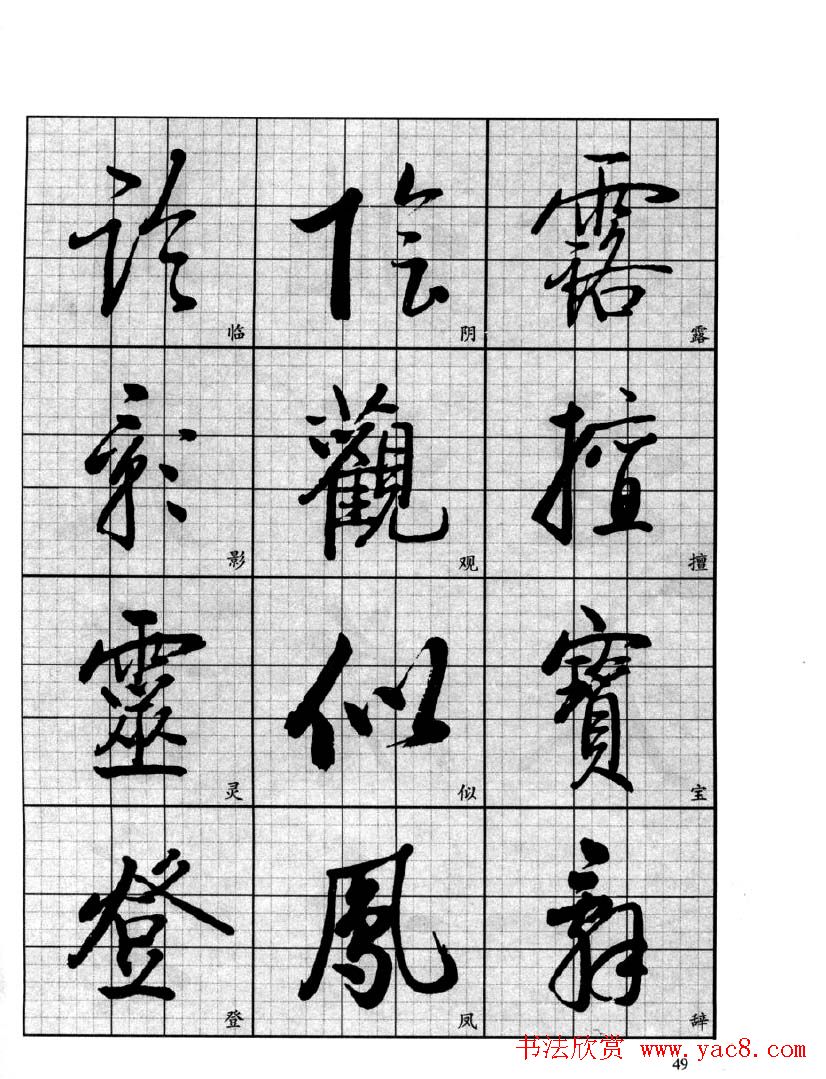 露 露
擅 擅
寶 宝
辭 辞
陰 阴
觀 观
似 似
鳳 凤
临 临
影 影
靈 灵
登 登
书法欣赏 www.yac8.com
49